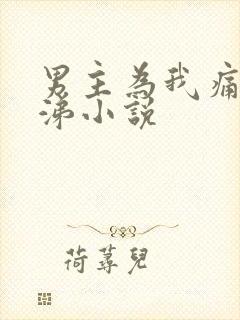 男主為我痛
涕小說
荷蕁兒